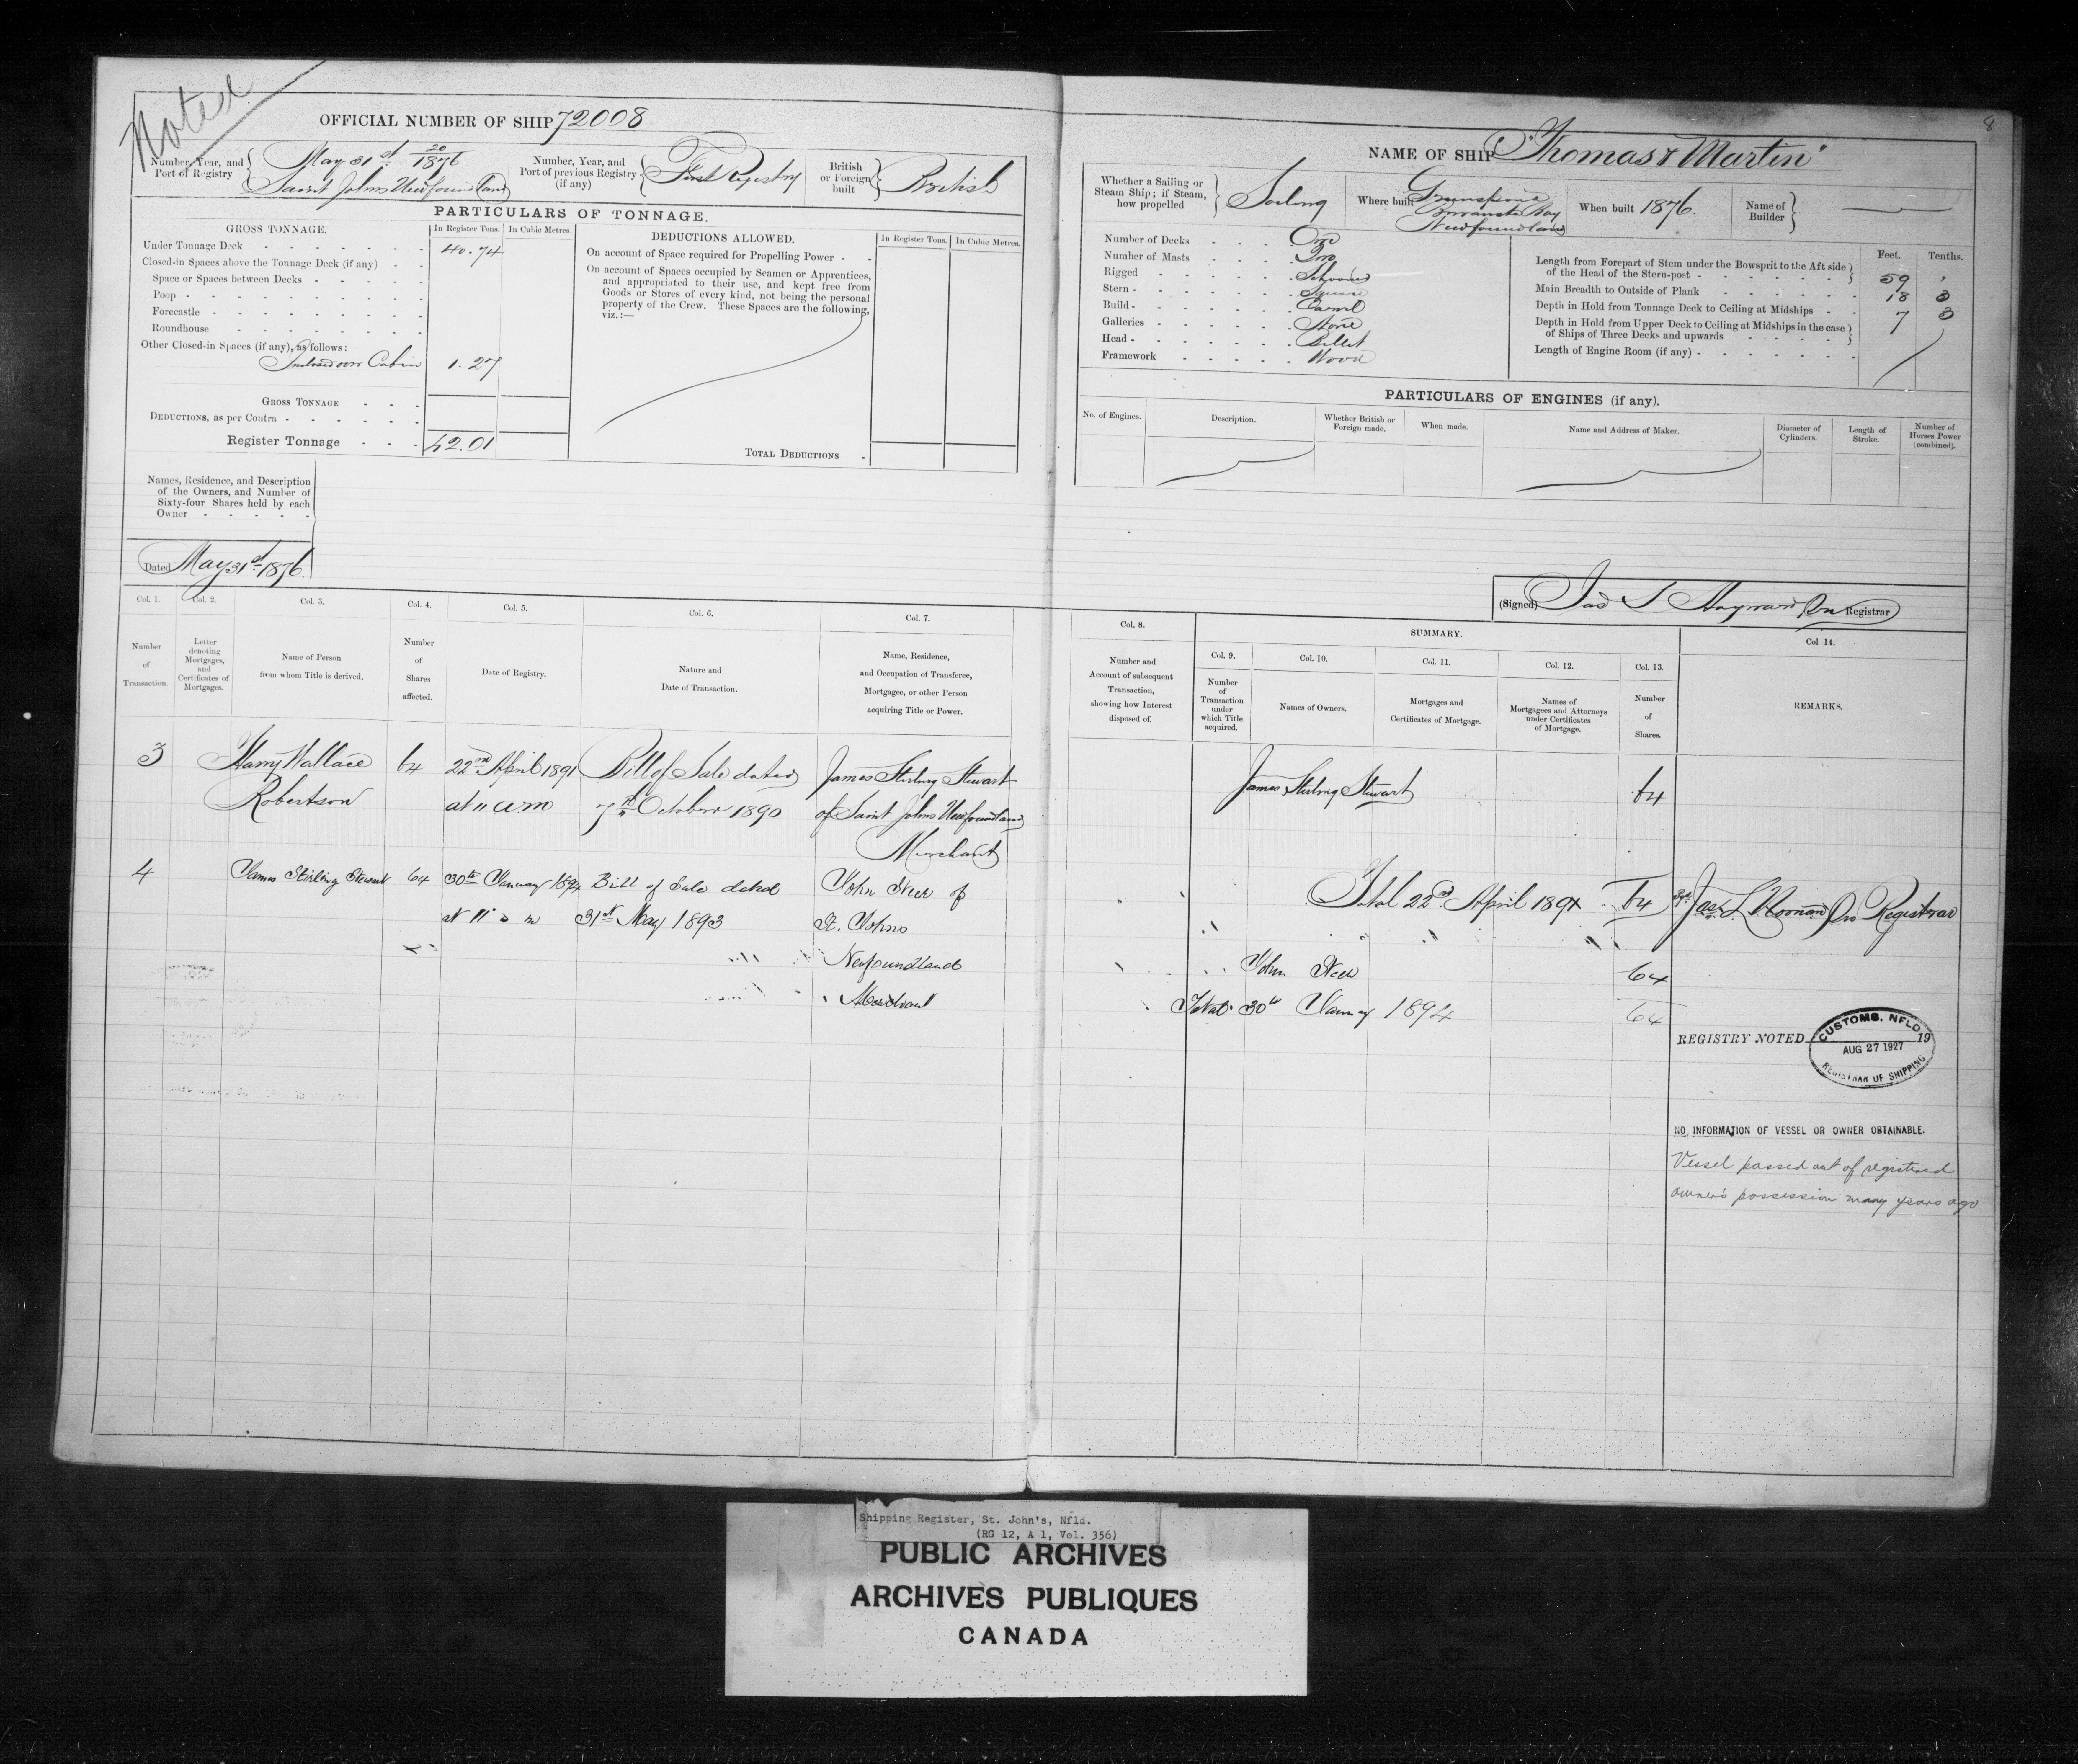 Noted
OFFICIAL NUMBER OF SHIP 72008
Number, Year, and Port of Registry
May 31st 20/1876
Saint Johns Newfoundland
Number, Year, and Port of previous Registry (if any)
First Registry
British or Foreign built
British
PARTICULARS OF TONNAGE.
GROSS TONNAGE.
In Register Tons.
In Cubic Metres.
Under Tonnage Deck 40.74
Closed-in Spaces above the Tonnage Deck (if any)
Space or Spaces between Decks
Poop
Forecastle
Roundhouse
Other Closed-in Spaces (if any), as follows:
Cabin 1.27
GROSS TONNAGE
DEDUCTIONS, as per Contra
Register Tonnage 42.01
DEDUCTIONS ALLOWED.
In Register Tons.
In Cubic Metres.
On account of Space required for Propelling Power
On account of Spaces occupied by Seamen or Apprentices,
and appropriated to their use, and kept free from
Goods or Stores of every kind, not being the personal
property of the Crew. These Spaces are the following,
viz.:—
TOTAL DEDUCTIONS
Names, Residence, and Description
of the Owners, and Number of
Sixty-four Shares held by each
Owner
Dated May 31st 1876
8
NAME OF SHIP "Thomas & Martin"
Whether a Sailing or Steam Ship; if Steam, how propelled
Sailing
Where built
Bay
Newfoundland
When built 1876.
Name of Builder
Number of Decks One
Number of Masts Two
Rigged Schooner
Stern Square
Build Carvel
Galleries None
Head Billet
Framework Wood
Feet. Tenths.
Length from Forepart of Stem under the Bowsprit to the Aft side
of the Head of the Stern-post 59 "
Main Breadth to Outside of Plank 18 3
Depth in Hold from Tonnage Deck to Ceiling at Midships 7 3
Depth in Hold from Upper Deck to Ceiling at Midships in the case
of Ships of Three Decks and upwards
Length of Engine Room (if any)
PARTICULARS OF ENGINES (if any).
No. of Engines.
Description.
Whether British or Foreign made.
When made.
Name and Address of Maker.
Diameter of Cylinders.
Length of Stroke.
Number of Horses Power (combined).
(Signed) Registrar
Col. 1.
Number of Transaction.
Col. 2.
Letter denoting Mortgages, and Certificates of Mortgages.
Col. 3.
Name of Person from whom Title is derived.
Col. 4.
Number of Shares affected.
Col. 5.
Date of Registry.
Col. 6.
Nature and Date of Transaction.
Col. 7.
Name, Residence, and Occupation of Transferee, Mortgagee, or other Person acquiring Title or Power.
Col. 8.
Number and Account of subsequent Transaction, showing how Interest disposed of.
SUMMARY.
Col. 9.
Number of Transaction under which Title acquired.
Col. 10.
Names of Owners.
Col. 11.
Mortgages and Certificates of Mortgage.
Col. 12.
Names of Mortgagees and Attorneys under Certificates of Mortgage.
Col. 13.
Number of Shares.
Col 14.
REMARKS.
3 Harry Wallace 64 22nd April 1891 Bill of Sale dated James Stirling Stewart
Robertson at 11 am 7th October 1890 of Saint Johns Newfoundland
Merchant
James Stirling Stewart 64
4 James Stirling Stewart 64 30th January 1894 Bill of Sale dated John of
31st May 1893 St. Johns
Newfoundland
Merchant
Total 22nd April 1891 64 Registrar
John 64
Total 30th January 1894 64
REGISTRY NOTED 19
CUSTOMS, NFLD.
AUG 27 1927
REGISTRAR OF SHIPPING
NO INFORMATION OF VESSEL OR OWNER OBTAINABLE.
Vessel passed out of registered
owner's possession many years ago
Shipping Register, St. John's, Nfld.
(RG 12, A 1, Vol. 356)
PUBLIC ARCHIVES
ARCHIVES PUBLIQUES
CANADA